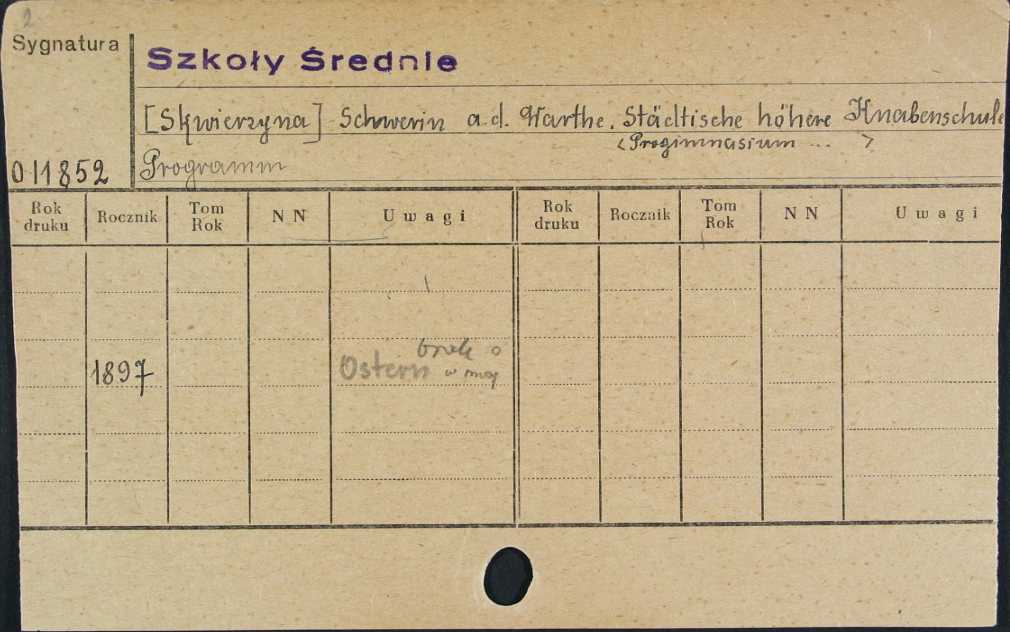 2
Sygnatura
Szkoły Średnie
[Skwierzyna] Schwerin a.d. Warthe. Städtische höhere Knabenschule
<Progimnasium ... >
011852 Programm
Rok druku Rocznik Tom Rok N N Uwagi Rok druku Rocznik Tom Rok N N Uwagi
brak
1897 Ostern w